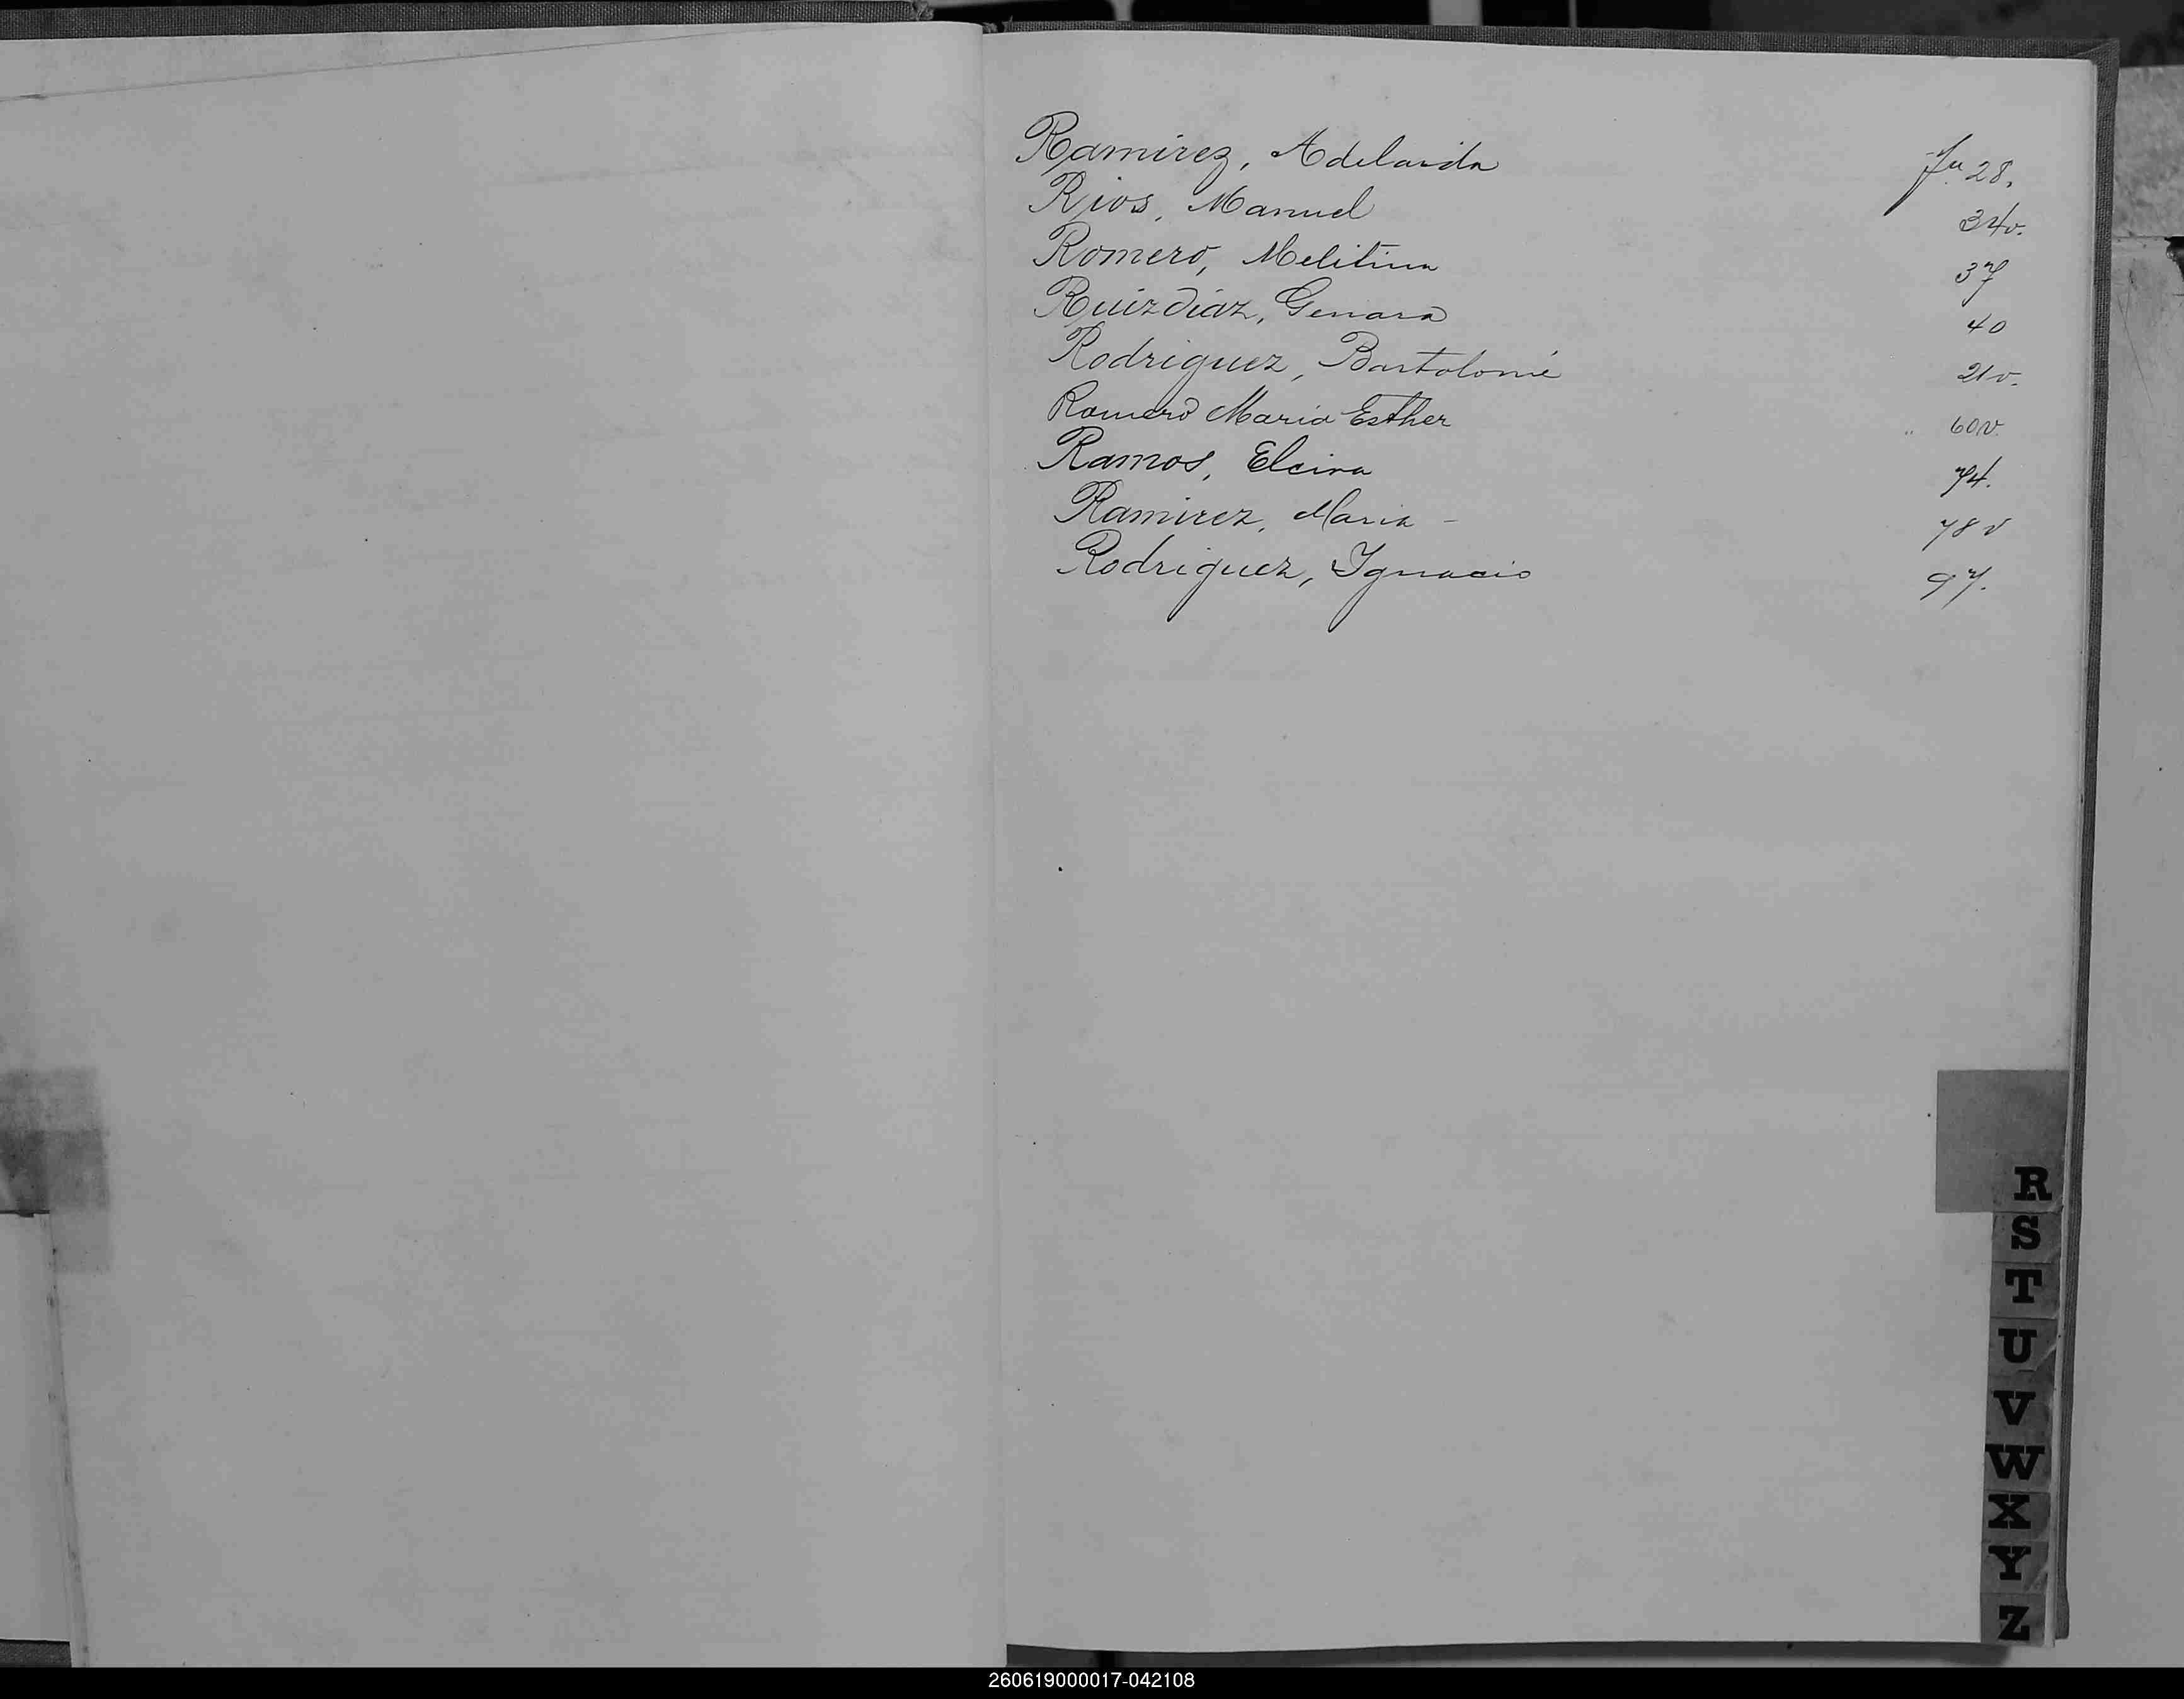 Ramirez, Adelaida fu 28.
Rios, Manuel 34v.
Romero, Melitina 37
Ruizdiaz, Genara 40
Rodriguez, Bartolomé 21v.
Romero Maria Esther " 60v.
Ramos, Elcira 74.
Ramirez, Maria - 78v
Rodriguez, Ignacio 97.
R
S
T
U
V
W
X
Y
Z
260619000017-042108